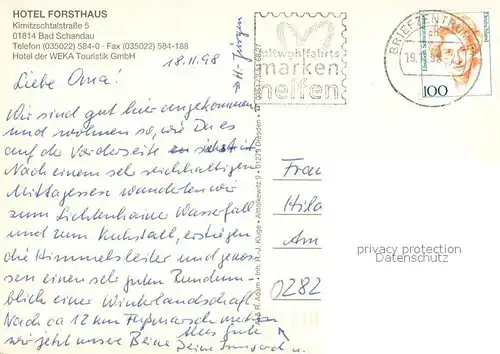 HOTEL FORSTHAUS
Kirnitzschtalstraße 5
01814 Bad Schandau
Telefon (035022) 584-0 · Fax (035022) 584-188
Hotel der WEKA Touristik GmbH
18.11.98
Liebe Oma!
Wir sind gut hier angekommen
und wohnen so, wie Du es
auf der Vorderseite
Nach einem sehr reichhaltigen
Mittagessen wanderten wir
zum Lichtenhainer Wasserfall
und zum Kuhstall, erstiegen
die Himmelsleiter und genos-
sen einen sehr guten Rundum-
blick einer Winterlandschaft.
Nach ca 12 km Fußmarsch
wir jetzt unsere Beine
Alles Gute
Deine Irmgard u.
H.-Jürgen
wohlfahrts
marken
helfen
BRIEFZENTRUM
19.
100
Frau
Hila
Am
0282
privacy protection
Datenschutz